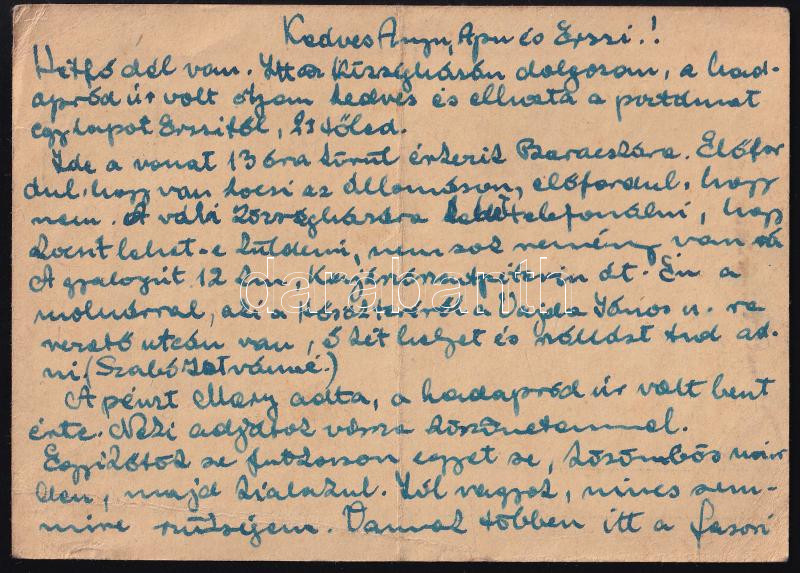 Kedves Anyu, Apu és Erzsi.!
Hétfő dél van. Itt a községházán dolgozom, a had-
apród úr volt olyan kedves és elhozta a postámat
egy lapot Erzsitől, 21 tőled.
Ide a vonat 13 óra körül érkezik Baracskára. Előfor
dul, hogy van kocsi az állomáson, előfordul, hogy
nem. A váli községházára lehet telefonálni, hogy
kocsit lehet-e küldeni, nem sok remény van rá
A gyalogút 12 km, Kajászószentpéteren át. Én a
molnárral, aki a községháztól a Vajda János u.-ra
vezető utcán van, ő két helyet és szállást tud ad-
ni. (Szabó Istvánné.)
A pénzt Mary adta, a hadapród úr volt bent
érte. Neki adjátok vissza köszönettel.
Egyikőtök se futkosson egyet se, közömbös min
den, majd kialakul. Jól vagyok, nincs sem-
mire szükségem. Vannak többen itt a fasori
darabanth